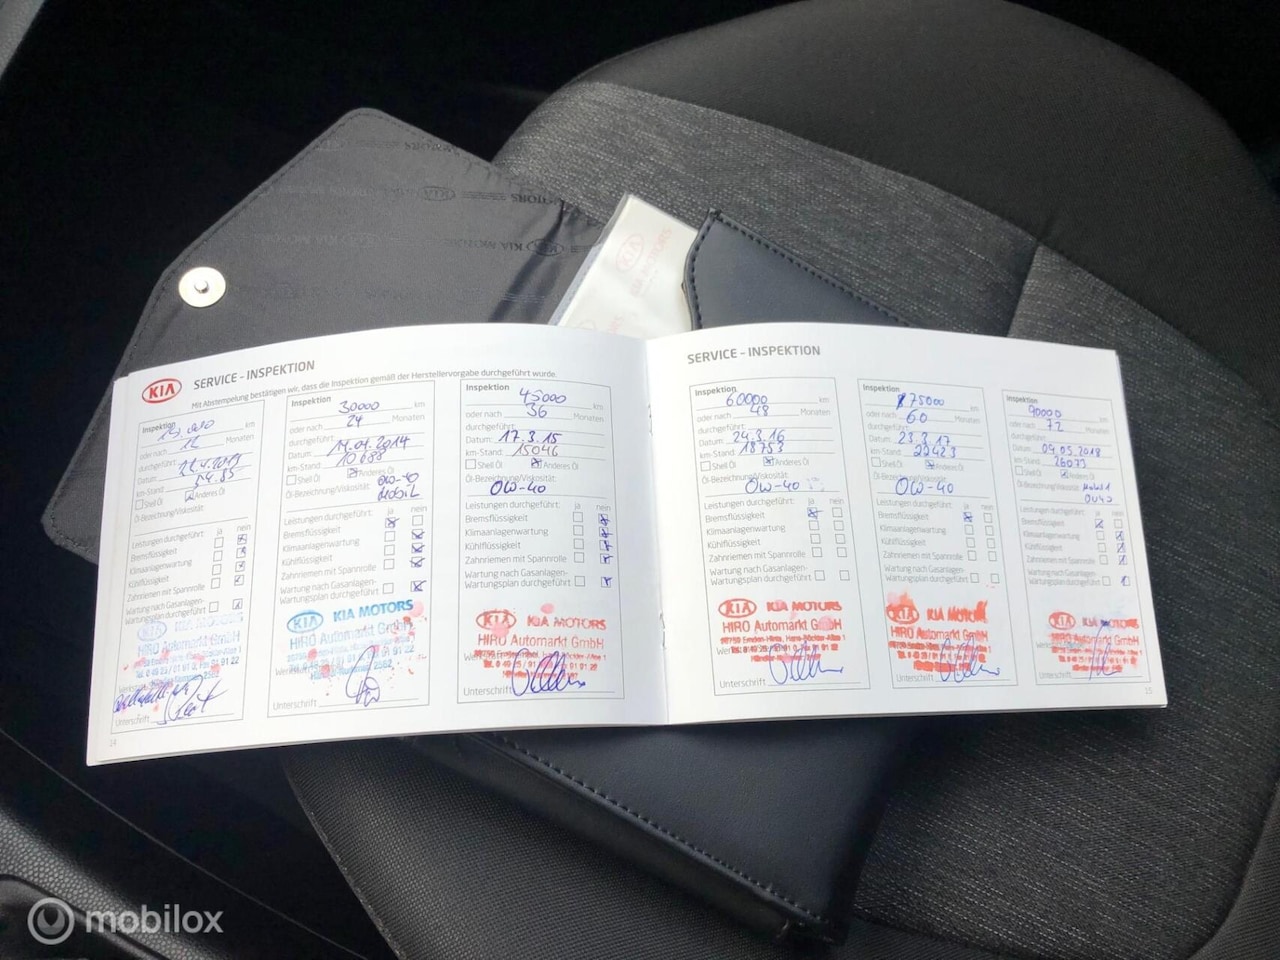 KIA MOTORS
KIA
KIA MOTORS
KIA
KIA
SERVICE – INSPEKTION
Mit Abstempelung bestätigen wir, dass die Inspektion gemäß der Herstellervorgabe durchgeführt wurde.
Inspektion
km
oder nach 12 Monaten
durchgeführt:
Datum:
km-Stand:
Shell Öl Anderes Öl
Öl-Bezeichnung/Viskosität:
Leistungen durchgeführt: ja nein
Bremsflüssigkeit
Klimaanlagenwartung
Kühlflüssigkeit
Zahnriemen mit Spannrolle
Wartung nach Gasanlagen-
Wartungsplan durchgeführt
KIA MOTORS
HIRO Automarkt GmbH
Unterschrift
14
Inspektion
30000 km
oder nach 24 Monaten
durchgeführt:
Datum: 14.01.2014
km-Stand: 10688
Shell Öl Anderes Öl
Öl-Bezeichnung/Viskosität: 0W-40
Mobil
Leistungen durchgeführt: ja nein
Bremsflüssigkeit
Klimaanlagenwartung
Kühlflüssigkeit
Zahnriemen mit Spannrolle
Wartung nach Gasanlagen-
Wartungsplan durchgeführt
KIA KIA MOTORS
HIRO Automarkt GmbH
Unterschrift
Inspektion
45000 km
oder nach 36 Monaten
durchgeführt:
Datum: 17.3.15
km-Stand: 15046
Shell Öl Anderes Öl
Öl-Bezeichnung/Viskosität:
0W-40
Leistungen durchgeführt: ja nein
Bremsflüssigkeit
Klimaanlagenwartung
Kühlflüssigkeit
Zahnriemen mit Spannrolle
Wartung nach Gasanlagen-
Wartungsplan durchgeführt
KIA KIA MOTORS
HIRO Automarkt GmbH
Unterschrift
SERVICE – INSPEKTION
Inspektion
60000 km
oder nach 48 Monaten
durchgeführt:
Datum: 24.3.16
km-Stand: 18753
Shell Öl Anderes Öl
Öl-Bezeichnung/Viskosität:
0W-40
Leistungen durchgeführt: ja nein
Bremsflüssigkeit
Klimaanlagenwartung
Kühlflüssigkeit
Zahnriemen mit Spannrolle
Wartung nach Gasanlagen-
Wartungsplan durchgeführt
KIA KIA MOTORS
HIRO Automarkt GmbH
26759 Emden-Hinte, Hans-Böckler-Allee 1
Unterschrift
Inspektion
75000 km
oder nach 60 Monaten
durchgeführt:
Datum: 23.3.17
km-Stand: 22423
Shell Öl Anderes Öl
Öl-Bezeichnung/Viskosität:
0W-40
Leistungen durchgeführt: ja nein
Bremsflüssigkeit
Klimaanlagenwartung
Kühlflüssigkeit
Zahnriemen mit Spannrolle
Wartung nach Gasanlagen-
Wartungsplan durchgeführt
KIA KIA MOTORS
HIRO Automarkt GmbH
Unterschrift
Inspektion
90000 km
oder nach 72 Monaten
durchgeführt:
Datum: 09.05.2018
km-Stand: 26073
Shell Öl Anderes Öl
Öl-Bezeichnung/Viskosität: Mobil 1
0W40
Leistungen durchgeführt: ja nein
Bremsflüssigkeit
Klimaanlagenwartung
Kühlflüssigkeit
Zahnriemen mit Spannrolle
Wartung nach Gasanlagen-
Wartungsplan durchgeführt
KIA KIA MOTORS
HIRO Automarkt GmbH
Unterschrift
15
mobilox